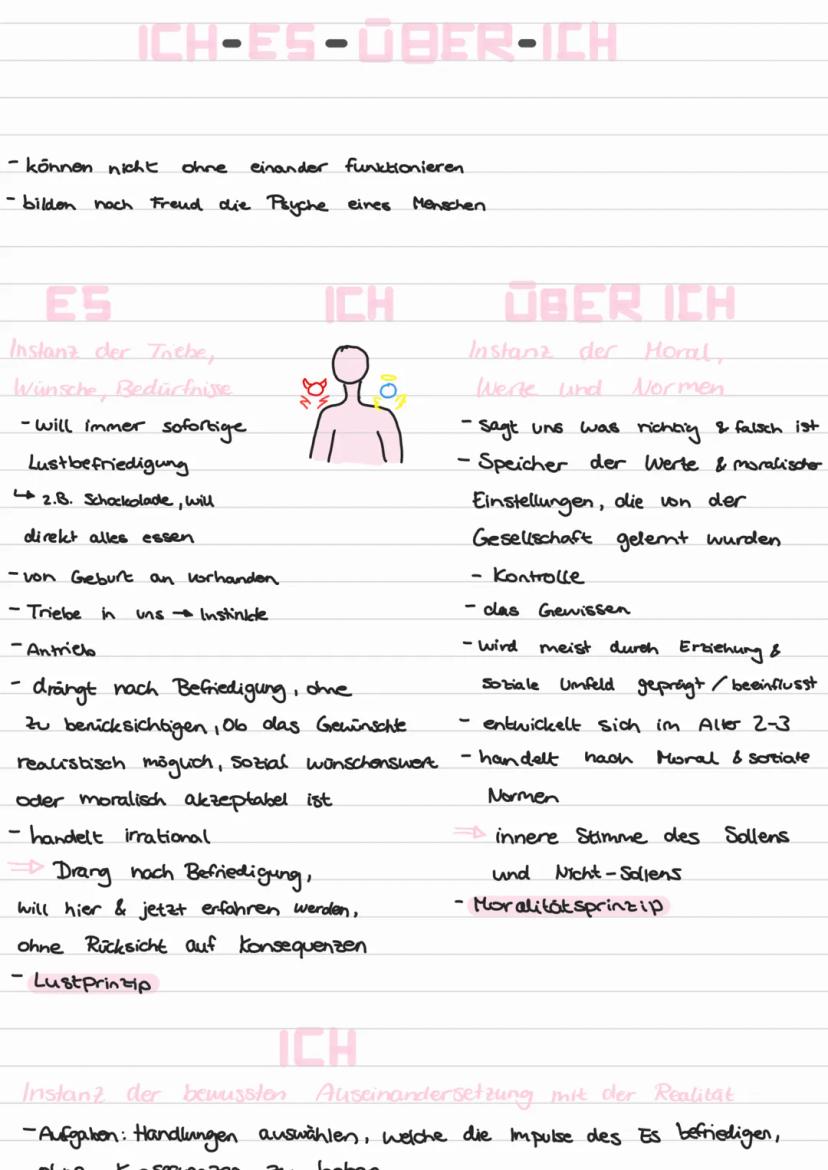 ICH-ES-ÜBER-ICH
- können nicht ohne einander funktionieren
- bilden nach Freud die Psyche eines Menschen
ES
Instanz der Triebe,
Wünsche, Bedürfnisse
- will immer sofortige
Lustbefriedigung
↳ z.B. Schockolade, will
direkt alles essen
- von Geburt an vorhanden
- Triebe in uns → Instinkte
- Antrieb
- drängt nach Befriedigung, ohne
zu berücksichtigen, ob das Gewünschte
realistisch möglich, sozial wünschenswert
oder moralisch akzeptabel ist
- handelt irrational
⇒ Drang nach Befriedigung,
will hier & jetzt erfahren werden,
ohne Rücksicht auf Konsequenzen
- Lustprinzip
ICH
ÜBER ICH
Instanz der Moral,
Werte und Normen
- sagt uns was richtig & falsch ist
- Speicher der Werte & moralischer
Einstellungen, die von der
Gesellschaft gelernt wurden
- Kontrolle
- das Gewissen
- wird meist durch Erziehung &
soziale Umfeld geprägt / beeinflusst
- entwickelt sich im Alter 2-3
- handelt nach Moral & soziale
Normen
⇒ innere Stimme des Sollens
und Nicht-Sollens
- Moralitätsprinzip
ICH
Instanz der bewussten Auseinandersetzung mit der Realität
- Aufgaben: Handlungen auswählen, welche die Impulse des Es befriedigen,